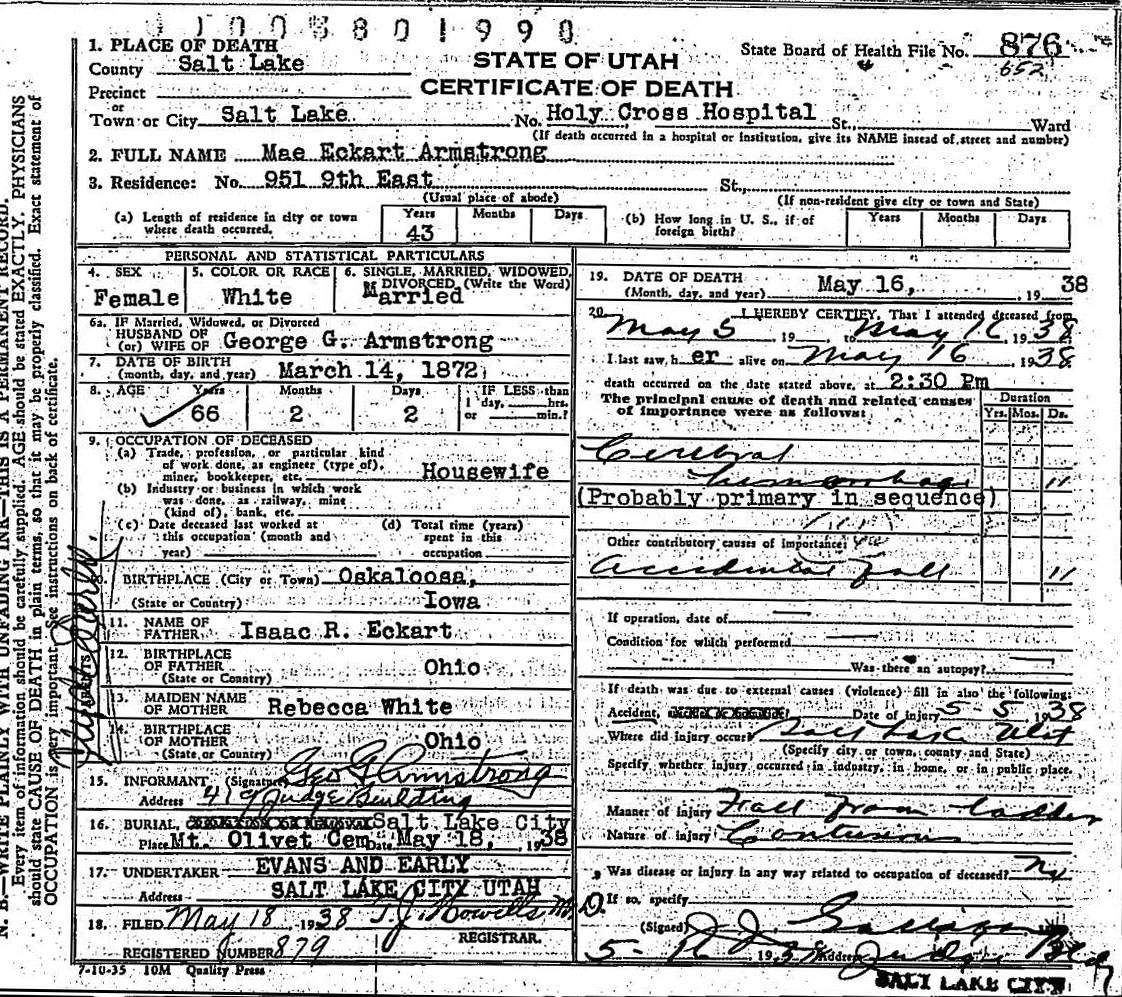 1003801990
1. PLACE OF DEATH
STATE OF UTAH
State Board of Health File No. 876
652
County Salt Lake
CERTIFICATE OF DEATH
Precinct
or
Town or City Salt Lake No. Holy Cross Hospital St., Ward
(If death occurred in a hospital or institution, give its NAME insead of street and number)
2. FULL NAME Mae Eckart Armstrong
3. Residence: No. 951 9th East St.,
(Usual place of abode)
(If non-resident give city or town and State)
(a) Length of residence in city or town where death occurred.
Years Months Days
43
(b) How long in U. S., if of foreign birth?
Years Months Days
PERSONAL AND STATISTICAL PARTICULARS
4. SEX
Female
5. COLOR OR RACE
White
6. SINGLE, MARRIED, WIDOWED, DIVORCED, (Write the Word)
Married
6a. IF Married, Widowed, or Divorced
HUSBAND OF
(or) WIFE OF George G. Armstrong
7. DATE OF BIRTH
(month, day, and year) March 14, 1872
8. AGE Years Months Days IF LESS than
1 day, hrs.
or min.?
66 2 2
9. OCCUPATION OF DECEASED
(a) Trade, profession, or particular kind
of work done, as engineer (type of),
miner, bookkeeper, etc. Housewife
(b) Industry or business in which work
was done, as railway, mine
(kind of), bank, etc.
(c) Date deceased last worked at
this occupation (month and
year)
(d) Total time (years)
spent in this
occupation
10. BIRTHPLACE (City or Town) Oskaloosa,
(State or Country) Iowa
11. NAME OF
FATHER Isaac R. Eckart
12. BIRTHPLACE
OF FATHER Ohio
(State or Country)
13. MAIDEN NAME
OF MOTHER Rebecca White
14. BIRTHPLACE
OF MOTHER Ohio
(State or Country)
15. INFORMANT (Signature) Geo G Armstrong
Address 419 Judge Building
16. BURIAL, Salt Lake City
Place Mt. Olivet Cem Date May 18, 1938
17. UNDERTAKER EVANS AND EARLY
Address SALT LAKE CITY UTAH
18. FILED May 18 1938 T. J. Howells M. D.
REGISTRAR.
REGISTERED NUMBER 879
7-10-35 10M Quality Press
19. DATE OF DEATH May 16, 1938
(Month, day, and year)
20. I HEREBY CERTIFY, That I attended deceased from
May 5 19 to May 16 1938
I last saw her alive on May 16 1938
death occurred on the date stated above, at 2:30 Pm
The principal cause of death and related causes
of importance were as follows:
Duration
Yrs. Mos. Ds.
Cerebral
hemorrhage 11
(Probably primary in sequence)
Other contributory causes of importance:
Accidental fall 11
If operation, date of
Condition for which performed
Was there an autopsy?
If death was due to external causes (violence) fill in also the following:
Accident, Date of injury 5-5 1938
Where did injury occur? Salt Lake Utah
(Specify city or town, county and State)
Specify whether injury occurred in industry, in home, or in public place.
Manner of injury Fall from ladder
Nature of injury Contusions
Was disease or injury in any way related to occupation of deceased? No
If so, specify
(Signed)
Address Judge Bldg
SALT LAKE CITY
N. B.—WRITE PLAINLY WITH UNFADING INK—THIS IS A PERMANENT RECORD.
Every item of information should be carefully supplied. AGE should be stated EXACTLY. PHYSICIANS
should state CAUSE OF DEATH in plain terms, so that it may be properly classified. Exact statement of
OCCUPATION is very important. See instructions on back of certificate.